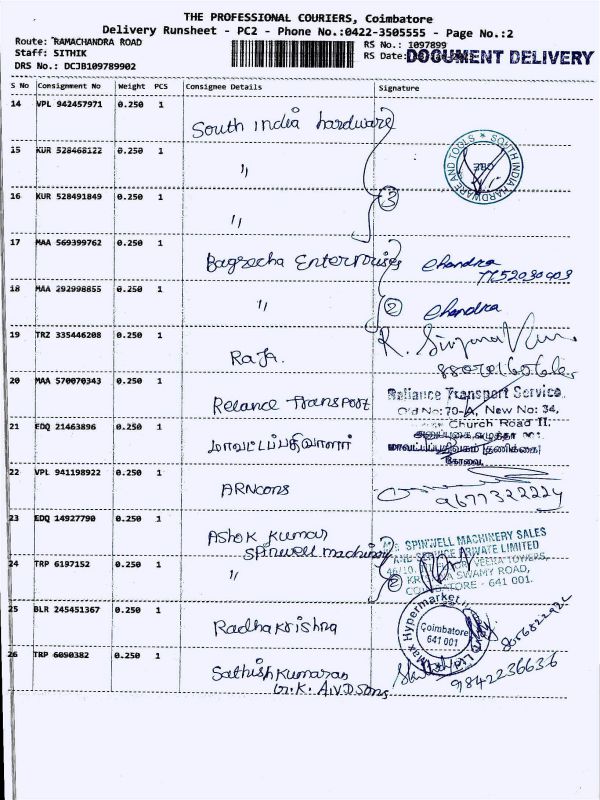 THE PROFESSIONAL COURIERS, Coimbatore
Delivery Runsheet - PC2 - Phone No.:0422-3505555 - Page No.:2
Route: RAMACHANDRA ROAD
RS No.: 1097899
Staff: SITHIK
RS Date:
DOCUMENT DELIVERY
DRS No.: DCJB109789902
S No Consignment No Weight PCS Consignee Details Signature
14 VPL 942457971 0.250 1 South india hardware
15 KUR 528468122 0.250 1 "
HARDWARE AND TOOLS * SOUTH INDIA
CBE
16 KUR 528491849 0.250 1 " 3
17 MAA 569399762 0.250 1 Bagrecha Enterprises Chandra
18 MAA 292998855 0.250 1 " 2 Chandra
19 TRZ 335446208 0.250 1 Raja.
20 MAA 570070343 0.250 1 Relance Transpost
Reliance Transport Service
Old No: 70-A, New No: 34,
Church Road II,
21 EDQ 21463896 0.250 1 மாவட்டப்பதிவாளர்
மாவட்டப்பதிவகம் (தணிக்கை)
கோவை
22 VPL 941198922 0.250 1 ARNcons
9677322224
23 EDQ 14927790 0.250 1 Ashok kumar
Spinwell machinery
SPINWELL MACHINERY SALES
AND SERVICE PRIVATE LIMITED
VEENA TOWERS,
SWAMY ROAD,
COIMBATORE - 641 001.
24 TRP 6197152 0.250 1 " 2
25 BLR 245451367 0.250 1 Radhakrishna
Max Hypermarket
Coimbatore
641 001
26 TRP 6090382 0.250 1 Sathishkumaran
A.V.D.Sons
9842236636